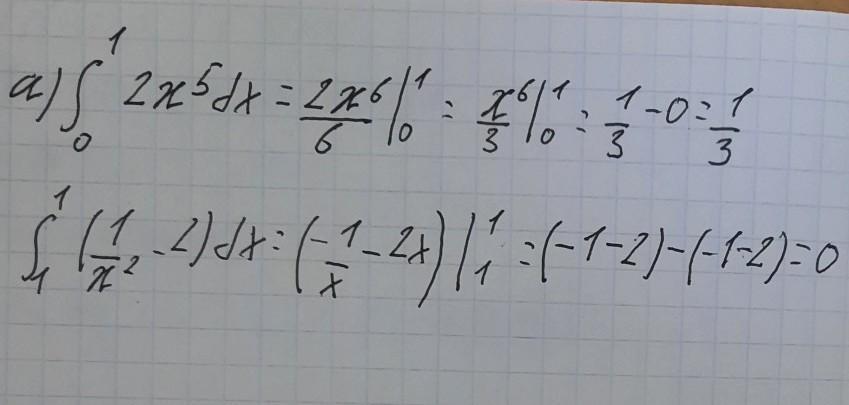 a) ∫₀¹ 2x⁵dx = 2x⁶/6 |₀¹ = x⁶/3 |₀¹ = 1/3 - 0 = 1/3
∫₁¹ (1/x² - 2)dx = (-1/x - 2x) |₁¹ = (-1-2)-(-1-2) = 0